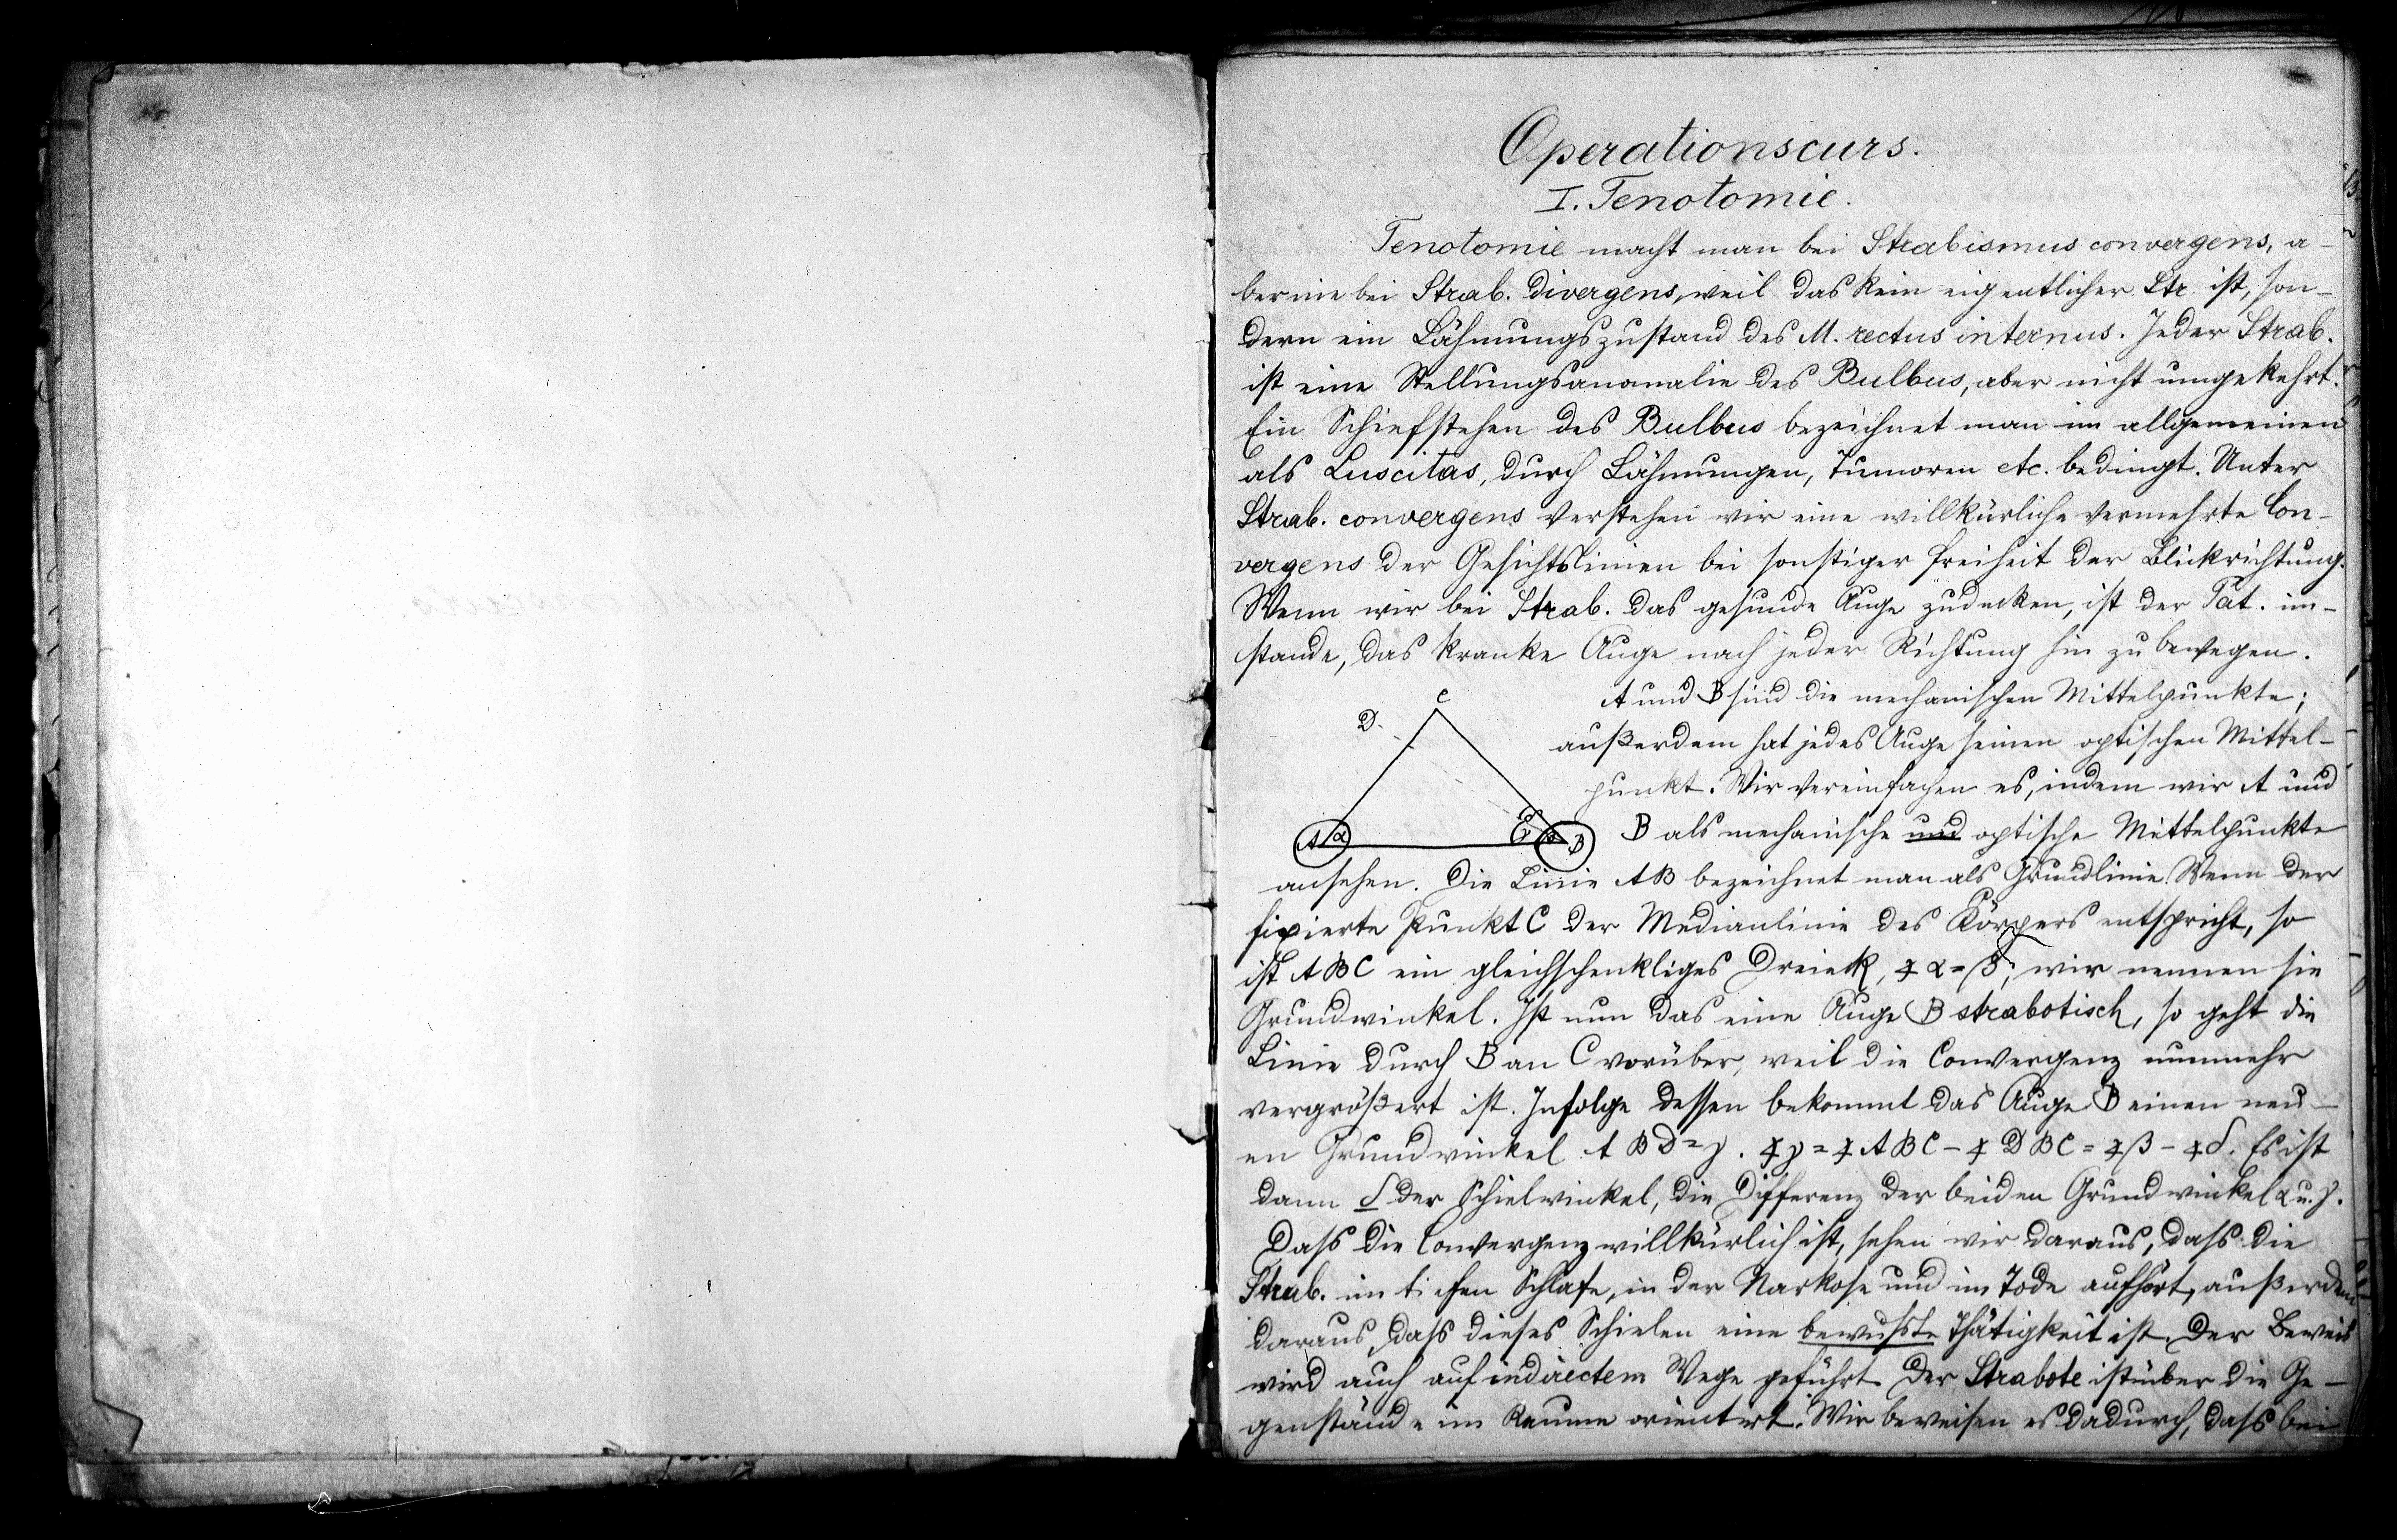 Operationscurs.
I. Tenotomie.
Tenotomie macht man bei Strabismus convergens, a-
ber nie bei Strab. divergens, weil das kein eigentlicher Str ist, son-
dern ein Lähmungszustand des M. rectus internus. Jeder Strab.
ist eine Stellungsanomalie des Bulbus, aber nicht umgekehrt.
Ein Schiefstehen des Bulbus bezeichnet man im allgemeinen
als Luscitas, durch Lähmungen, Tumoren etc. bedingt. Unter
Strab. convergens verstehen wir eine willkürliche vermehrte Con-
vergens der Gesichtslinien bei sonstiger Freiheit der Blickrichtung.
Wenn wir bei Strab. das gesunde Auge zudecken, ist der Pat. im-
stande, das kranke Auge nach jeder Richtung hin zu bewegen.
A und B sind die mechanischen Mittelpunkte;
außerdem hat jedes Auge seinen optischen Mittel-
punkt. Wir vereinfachen es, indem wir A und
B als mechanische und optische Mittelpunkte
C
D
A α
B
ansehen. Die Linie AB bezeichnet man als Grundlinie. Wenn der
fixierte Punkt C der Medianlinie des Körpers entspricht, so
ist ABC ein gleichschenkliges Dreieck, ∢ α = β; wir nennen sie
Grundwinkel. Ist nun das eine Auge B strabotisch, so geht die
Linie durch B an C vorüber, weil die Convergenz nunmehr
vergrößert ist. Infolge dessen bekommt das Auge B einen neu-
en Grundwinkel ABD = γ. ∢ γ = ∢ ABC - ∢ DBC = ∢ β - ∢ δ. Es ist
dann δ der Schielwinkel, die Differenz der beiden Grundwinkel α u. γ.
Dass die Convergenz willkürlich ist, sehen wir daraus, dass die
Strab. im tiefen Schlafe, in der Narkose und im Tode aufhört, außerdem
daraus, dass dieses Schielen eine bewusste Thätigkeit ist. Der Beweis
wird auch auf indirectem Wege geführt. Der Strabote ist über die Ge-
genstände im Raume orientirt. Wir beweisen es dadurch, dass bei